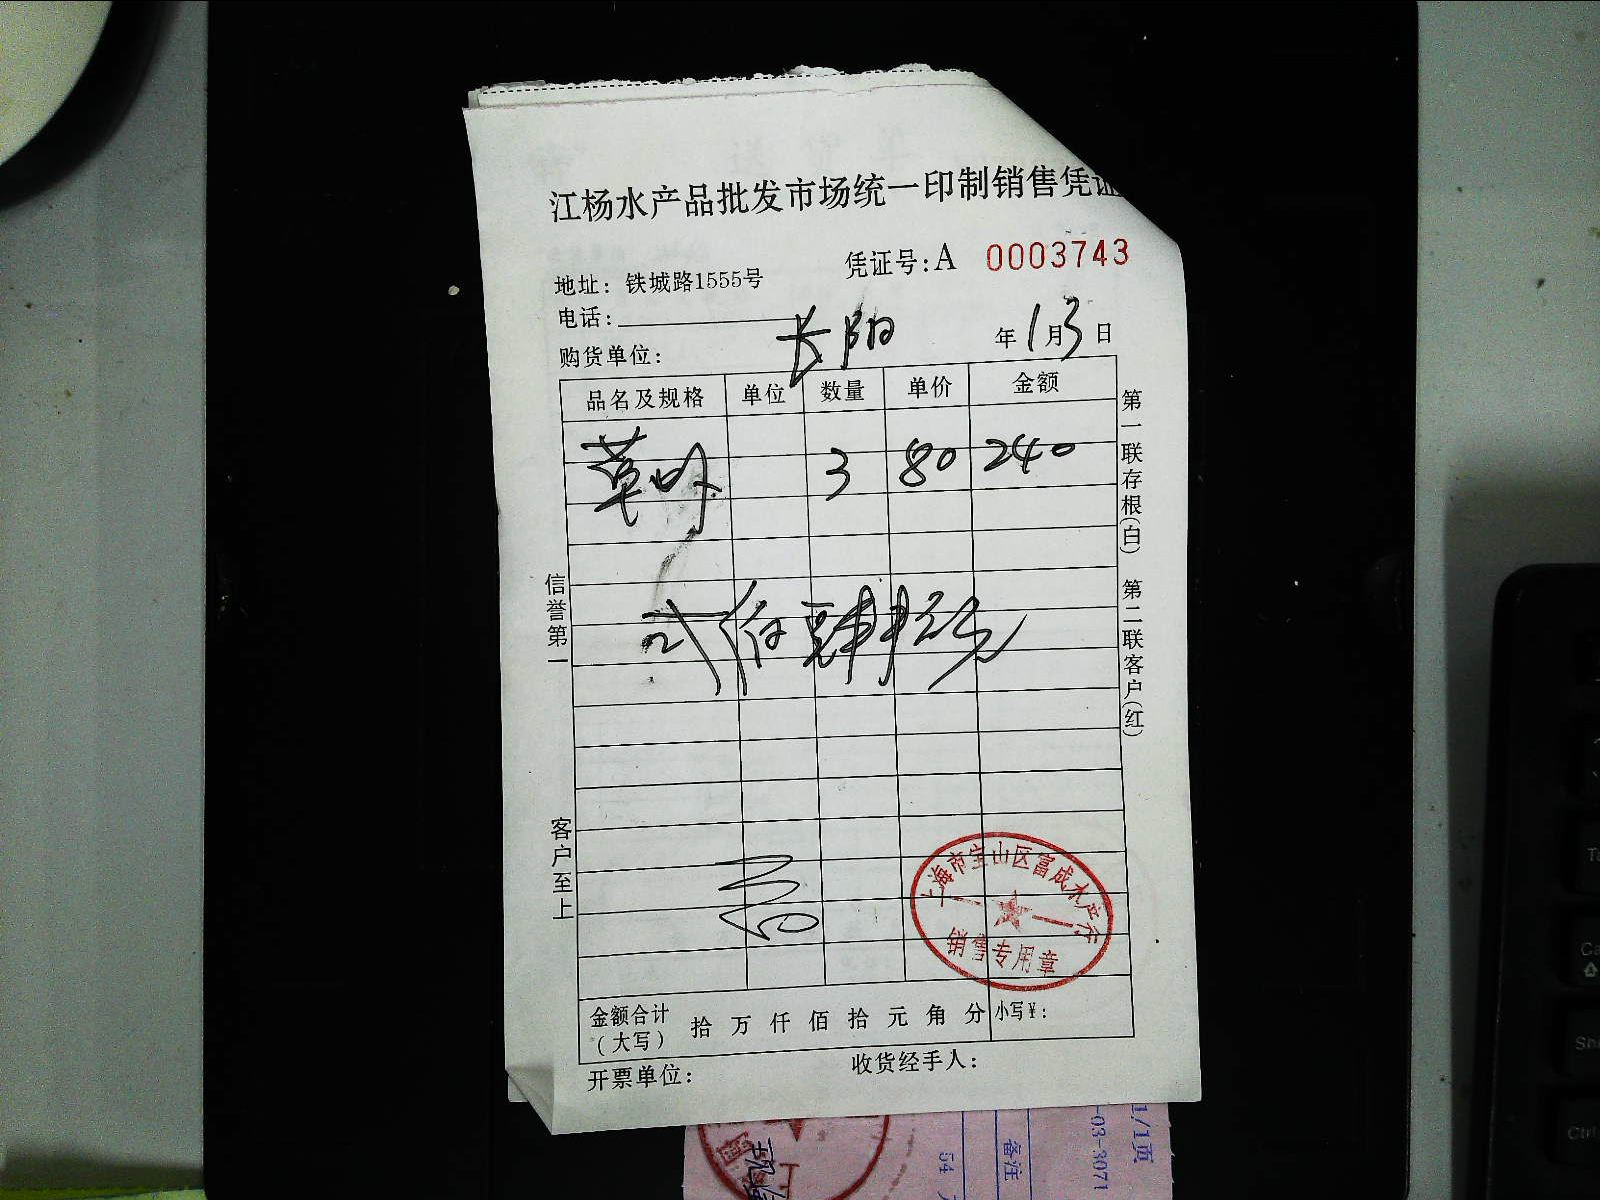 江杨水产品批发市场统一印制销售凭证
凭证号:A 0003743
地址: 铁城路1555号
电话:
购货单位: 长阳 年1月3日
品名及规格 单位 数量 单价 金额
草虾 3 80 240
贰佰肆拾元
第一联存根(白) 第二联客户(红)
信誉第一
客户至上
上海市宝山区富成水产行
销售专用章
金额合计(大写) 拾 万 仟 佰 拾 元 角 分 小写¥:
开票单位: 收货经手人:
1/1页
-03-3071
备注
54